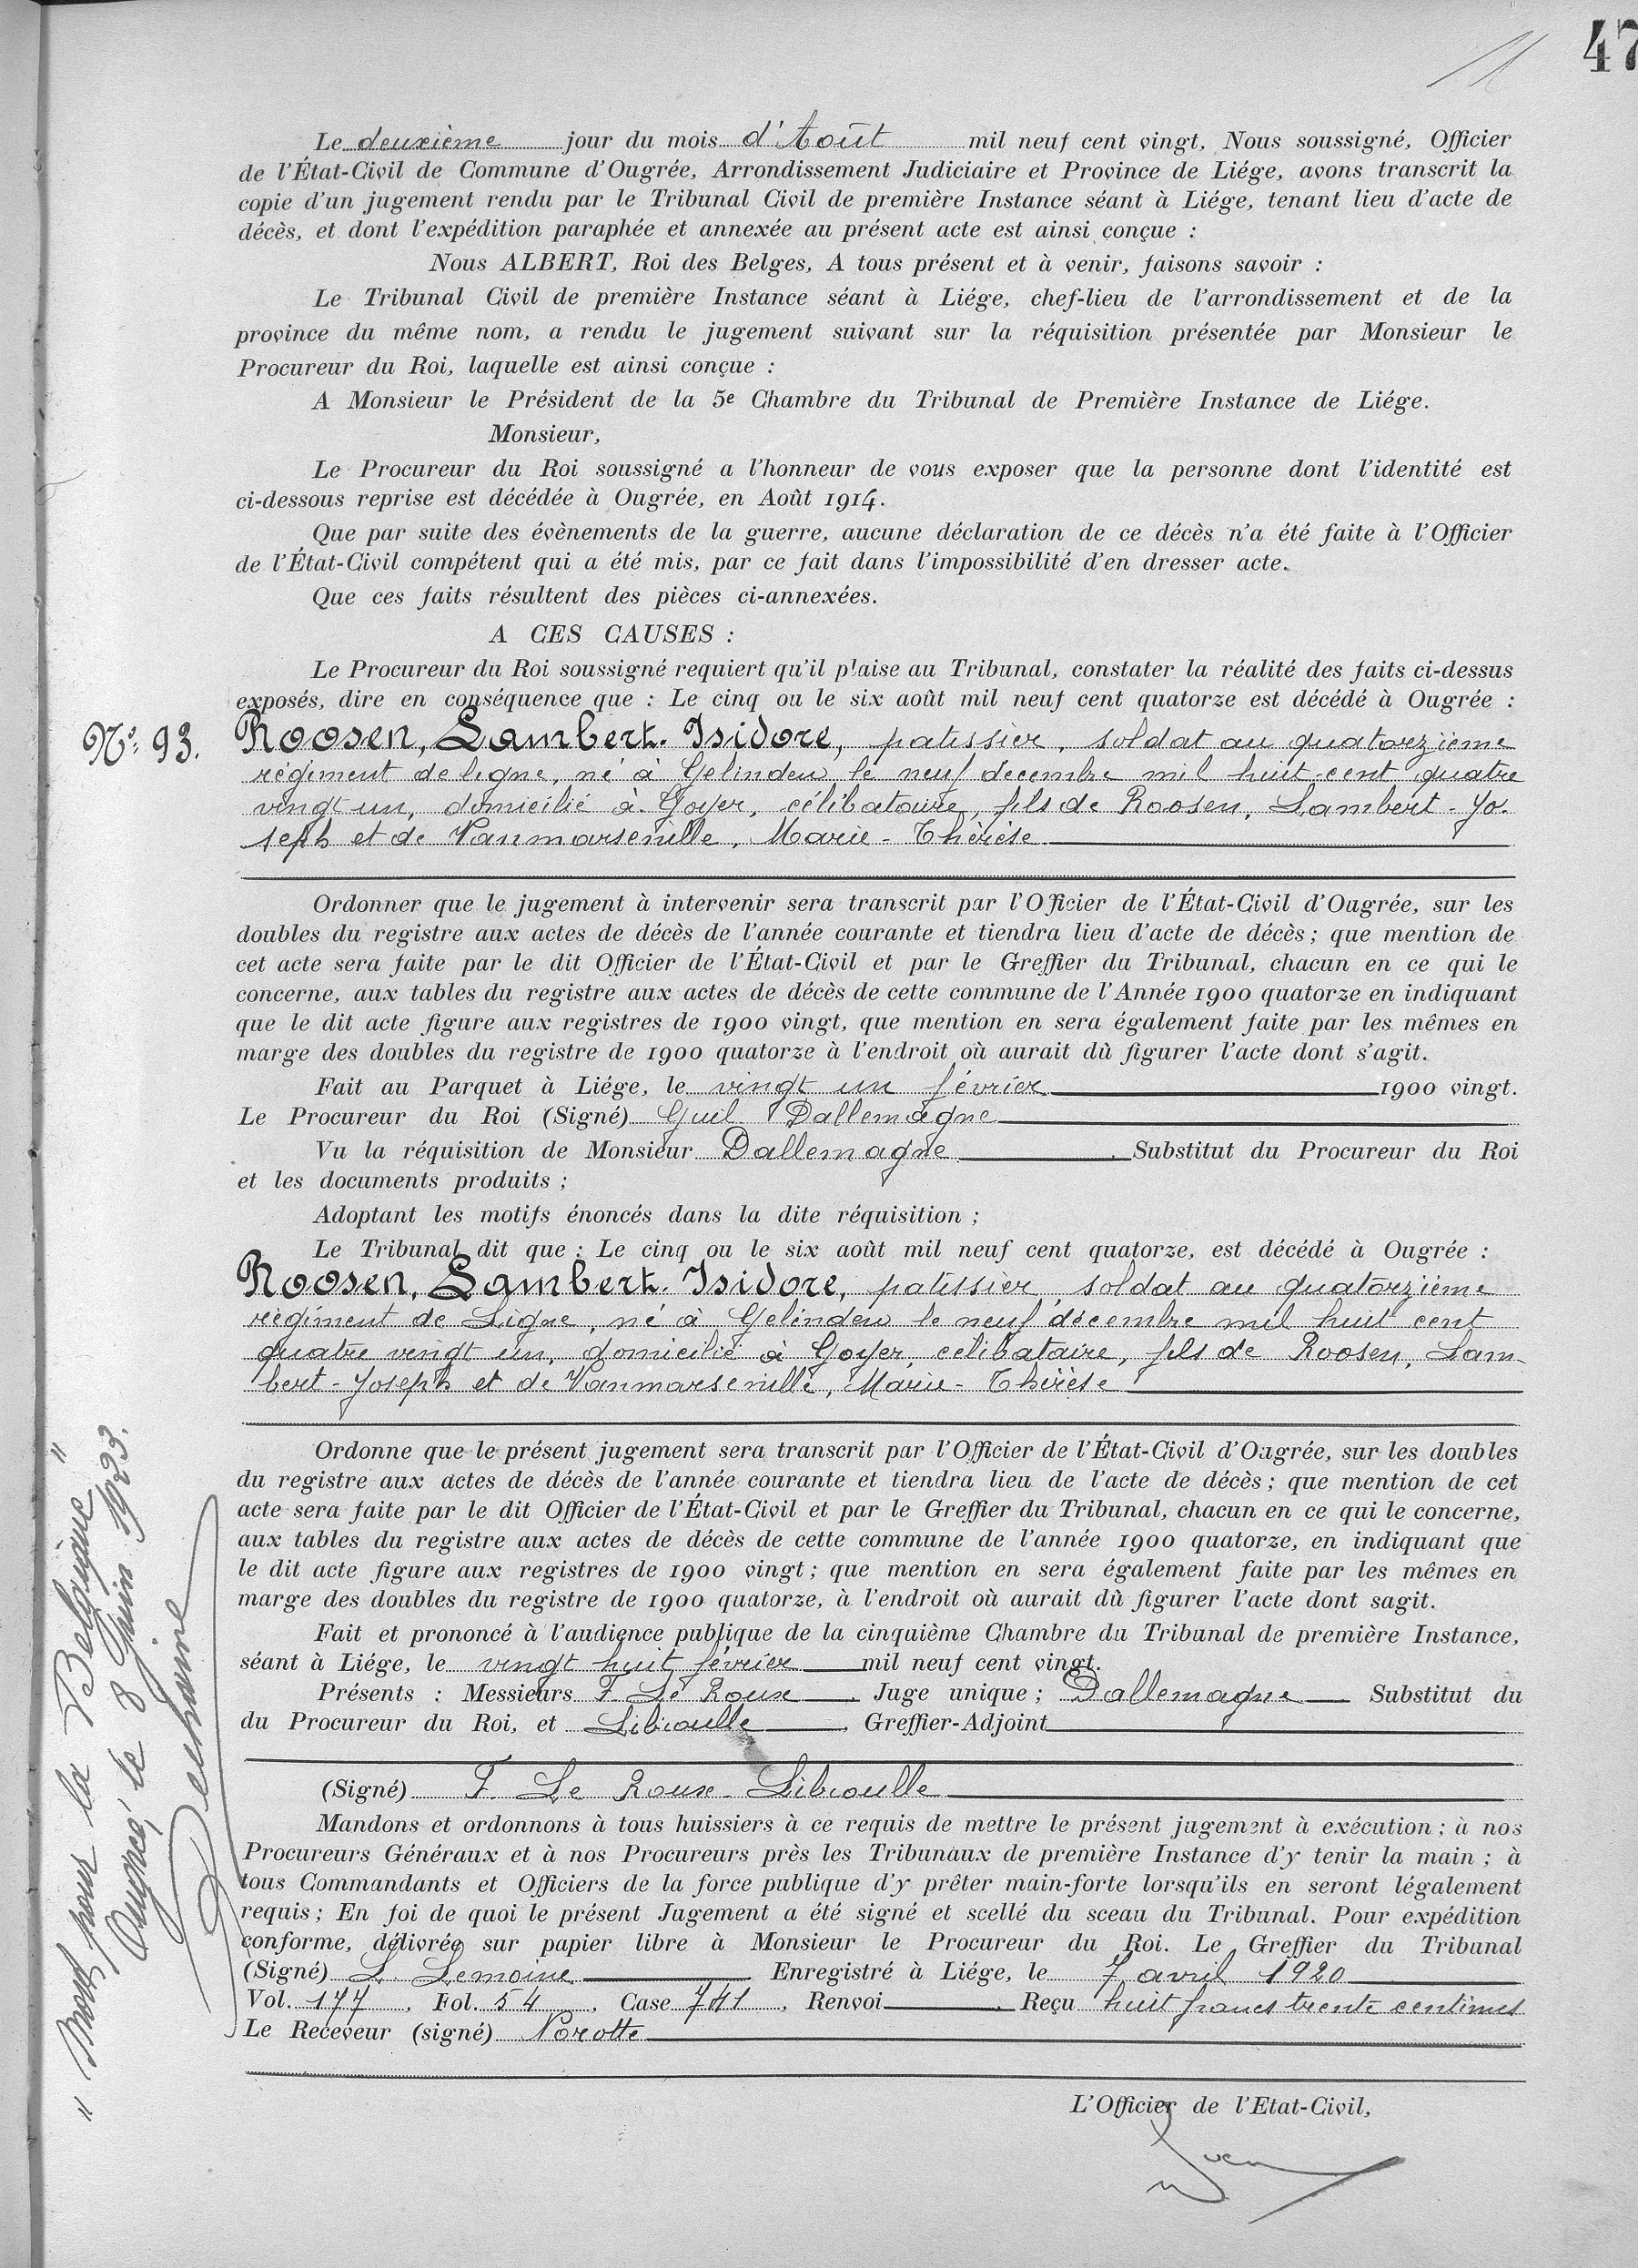 47
Le deuxième jour du mois d'Août mil neuf cent vingt, Nous soussigné, Officier
de l'État-Civil de Commune d'Ougrée, Arrondissement Judiciaire et Province de Liége, avons transcrit la
copie d'un jugement rendu par le Tribunal Civil de première Instance séant à Liége, tenant lieu d'acte de
décès, et dont l'expédition paraphée et annexée au présent acte est ainsi conçue :
Nous ALBERT, Roi des Belges, A tous présent et à venir, faisons savoir :
Le Tribunal Civil de première Instance séant à Liége, chef-lieu de l'arrondissement et de la
province du même nom, a rendu le jugement suivant sur la réquisition présentée par Monsieur le
Procureur du Roi, laquelle est ainsi conçue :
A Monsieur le Président de la 5e Chambre du Tribunal de Première Instance de Liége.
Monsieur,
Le Procureur du Roi soussigné a l'honneur de vous exposer que la personne dont l'identité est
ci-dessous reprise est décédée à Ougrée, en Août 1914.
Que par suite des évènements de la guerre, aucune déclaration de ce décès n'a été faite à l'Officier
de l'État-Civil compétent qui a été mis, par ce fait dans l'impossibilité d'en dresser acte.
Que ces faits résultent des pièces ci-annexées.
A CES CAUSES :
Le Procureur du Roi soussigné requiert qu'il plaise au Tribunal, constater la réalité des faits ci-dessus
exposés, dire en conséquence que : Le cinq ou le six août mil neuf cent quatorze est décédé à Ougrée :
No. 93. Roosen, Lambert-Isidore, patissier, soldat au quatorzième
régiment de ligne, né à Gelinden le neuf décembre mil huit cent quatre
vingt un, domicilié à Goyer, célibataire, fils de Roosen, Lambert-Jo-
seph et de Vanmarsenille, Marie-Thérèse
Ordonner que le jugement à intervenir sera transcrit par l'Officier de l'État-Civil d'Ougrée, sur les
doubles du registre aux actes de décès de l'année courante et tiendra lieu d'acte de décès ; que mention de
cet acte sera faite par le dit Officier de l'État-Civil et par le Greffier du Tribunal, chacun en ce qui le
concerne, aux tables du registre aux actes de décès de cette commune de l'Année 1900 quatorze en indiquant
que le dit acte figure aux registres de 1900 vingt, que mention en sera également faite par les mêmes en
marge des doubles du registre de 1900 quatorze à l'endroit où aurait dû figurer l'acte dont s'agit.
Fait au Parquet à Liége, le vingt un février 1900 vingt.
Le Procureur du Roi (Signé) Guil Dallemagne
Vu la réquisition de Monsieur Dallemagne. Substitut du Procureur du Roi
et les documents produits ;
Adoptant les motifs énoncés dans la dite réquisition ;
Le Tribunal dit que : Le cinq ou le six août mil neuf cent quatorze, est décédé à Ougrée :
Roosen, Lambert-Isidore, patissier, soldat au quatorzième
régiment de Ligne, né à Gelinden le neuf décembre mil huit cent
quatre vingt un, domicilié à Goyer, célibataire, fils de Roosen, Lam-
bert-Joseph et de Vanmarsenille, Marie-Thérèse
Ordonne que le présent jugement sera transcrit par l'Officier de l'État-Civil d'Ougrée, sur les doubles
du registre aux actes de décès de l'année courante et tiendra lieu de l'acte de décès ; que mention de cet
acte sera faite par le dit Officier de l'État-Civil et par le Greffier du Tribunal, chacun en ce qui le concerne,
aux tables du registre aux actes de décès de cette commune de l'année 1900 quatorze, en indiquant que
le dit acte figure aux registres de 1900 vingt ; que mention en sera également faite par les mêmes en
marge des doubles du registre de 1900 quatorze, à l'endroit où aurait dû figurer l'acte dont sagit.
Fait et prononcé à l'audience publique de la cinquième Chambre du Tribunal de première Instance,
séant à Liége, le vingt huit février mil neuf cent vingt.
Présents : Messieurs F. Le Roux. Juge unique ; Dallemagne Substitut du
du Procureur du Roi, et Libioulle. Greffier-Adjoint
(Signé) F. Le Roux - Libioulle
Mandons et ordonnons à tous huissiers à ce requis de mettre le présent jugement à exécution ; à nos
Procureurs Généraux et à nos Procureurs près les Tribunaux de première Instance d'y tenir la main ; à
tous Commandants et Officiers de la force publique d'y prêter main-forte lorsqu'ils en seront légalement
requis ; En foi de quoi le présent Jugement a été signé et scellé du sceau du Tribunal. Pour expédition
conforme, délivrée sur papier libre à Monsieur le Procureur du Roi. Le Greffier du Tribunal
(Signé) L. Lemoine Enregistré à Liége, le 7 avril 1920
Vol. 177, Fol. 54, Case 741, Renvoi. Reçu huit francs trente centimes
Le Receveur (signé) Porotte
L'Officier de l'Etat-Civil,
"Mort pour la Belgique"
Ougrée, le 8 Juin 1923.